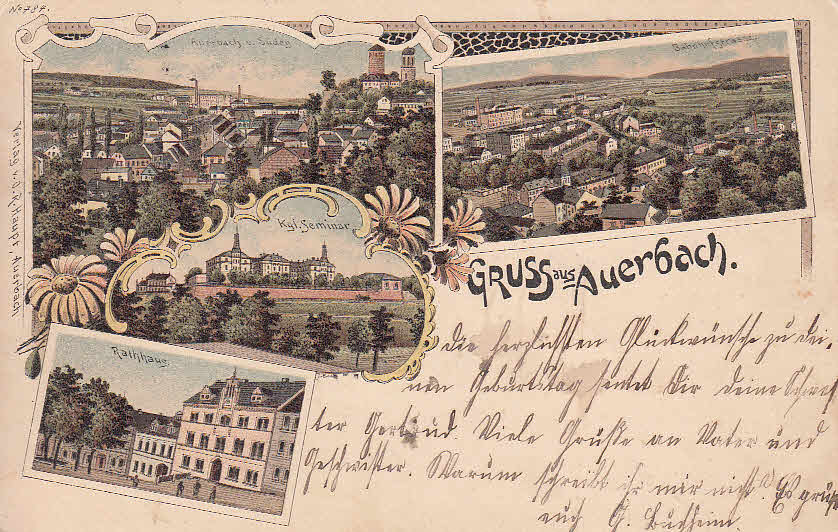 No 787.
Auerbach v. Süden
Bahnhofstrasse
Kgl. Seminar
Rathhaus
Verlag v. O. R. Haupt, Auerbach.
GRUSS aus Auerbach.
Die herzlichsten Glückwünsche zu dei-
nen Geburtstag sentet Dir deine Schwes
ter Gertrud. Viele Grüße an Vater und
Geschwister. Warum schreibt ihr mir nicht? Es grüßt
euch G.